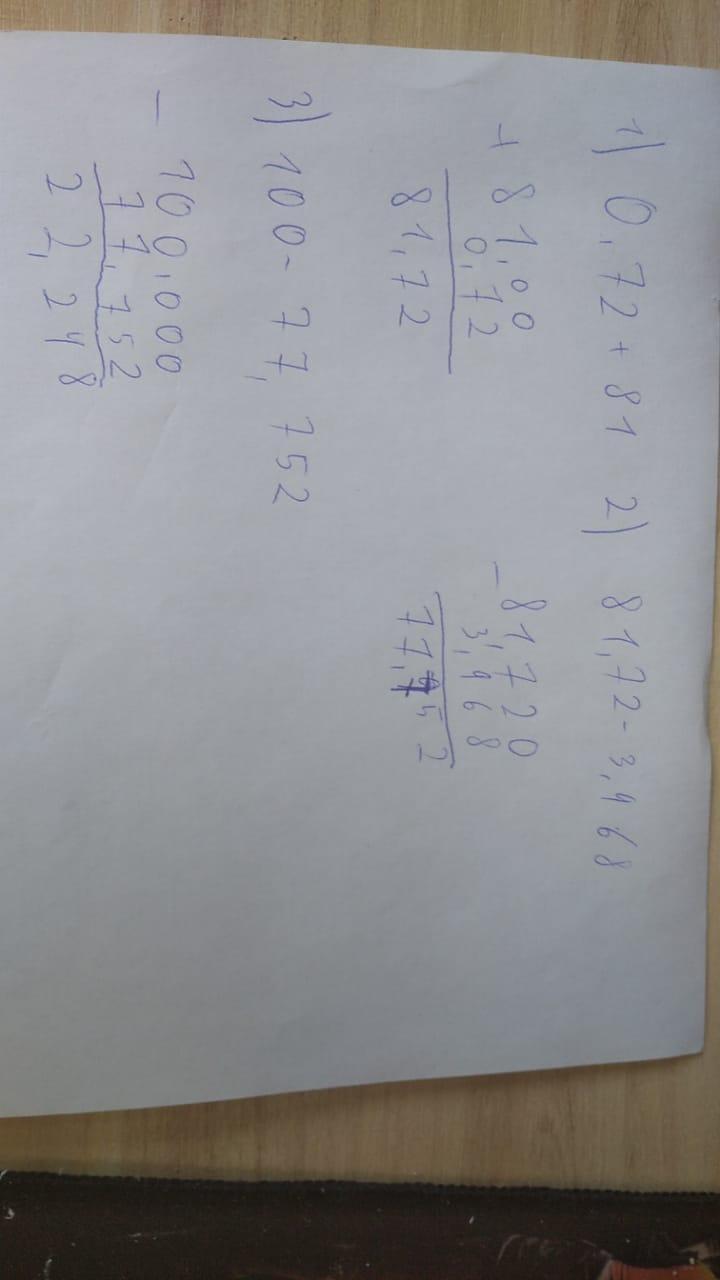 1) 0,72 + 81 2) 81,72 - 3,968
+ 81,00 - 81,720
0,72 3,968
81,72 77,752
3) 100 - 77,752
- 100,000
77,752
22,248